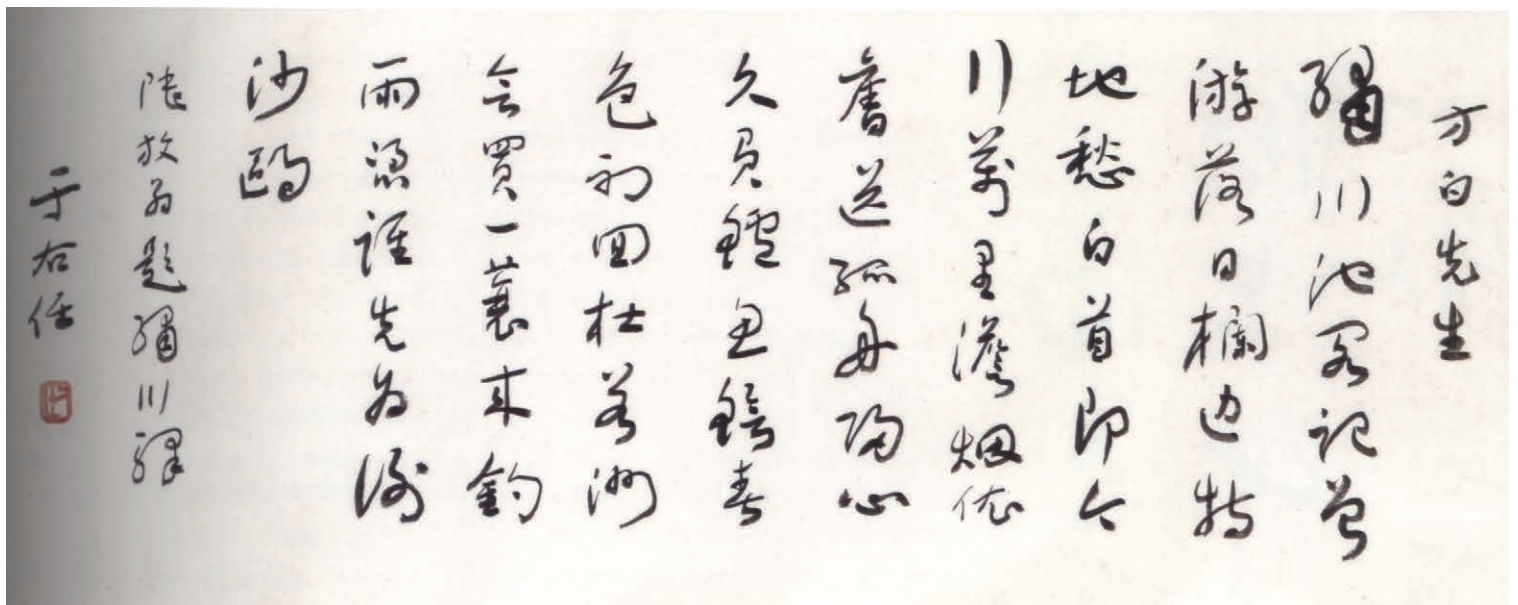 方白先生
繡川池閣記曾
游落日欄边特
地愁白首即今
行萬里澹烟依
舊送孤舟歸心
久負鱸魚鱠春
色初回杜若洲
會買一蓑来釣
雨憑誰先為謝
沙鷗
陸放翁題繡川驛
于右任